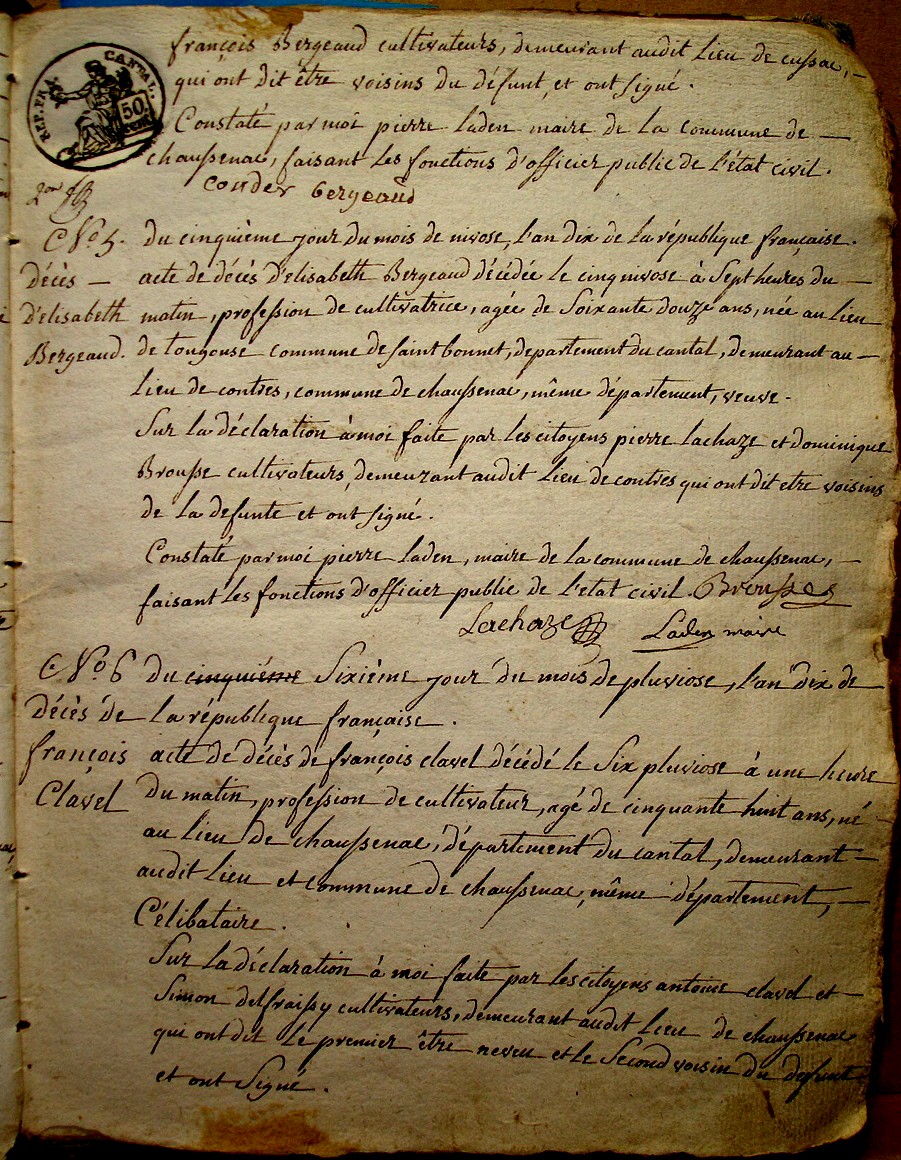 REP. FRA. CANTAL.
50 cent.
françois Bergeaud cultivateurs, demeurant audit lieu de cussac, –
qui ont dit être voisins du défunt, et ont signé.
Constaté par moi pierre laden maire de la commune de —
chaussenac, faisant les fonctions d'officier public de l'état civil.
Couder bergeaud
2
N.º 5. du cinquième jour du mois de nivose, l'an dix de la république française.
décès — acte de décès d'elisabeth Bergeaud décédée le cinq nivose à sept heures du —
d'elisabeth matin, profession de cultivatrice, agée de soixante douze ans, née au lieu
Bergeaud. de tougouse commune de saint bonnet, département du cantal, demeurant au —
lieu de contres, commune de chaussenac, même département, veuve.
Sur la déclaration à moi faite par les citoyens pierre lachaze et dominique
Brousse cultivateurs, demeurant audit lieu de contres qui ont dit etre voisins
de la defunte et ont signé.
Constaté par moi pierre laden, maire de la commune de chaussenac, —
faisant les fonctions d'officier public de l'etat civil. Brousse
Lachaze Laden maire
N.º 6 du cinquième Sixième jour du mois de pluviose, l'an dix de
décès de la république française.
françois acte de décès de françois clavel décédé le six pluviose à une heure
Clavel du matin, profession de cultivateur, agé de cinquante huit ans, né
au lieu de chaussenac, département du cantal, demeurant —
audit lieu et commune de chaussenac, même département, —
Célibataire.
Sur la déclaration à moi faite par les citoyens antoine clavel et —
Simon delfraissy cultivateurs, demeurant audit lieu de chaussenac
qui ont dit le premier être neveu et le second voisin du defunt
et ont signé.